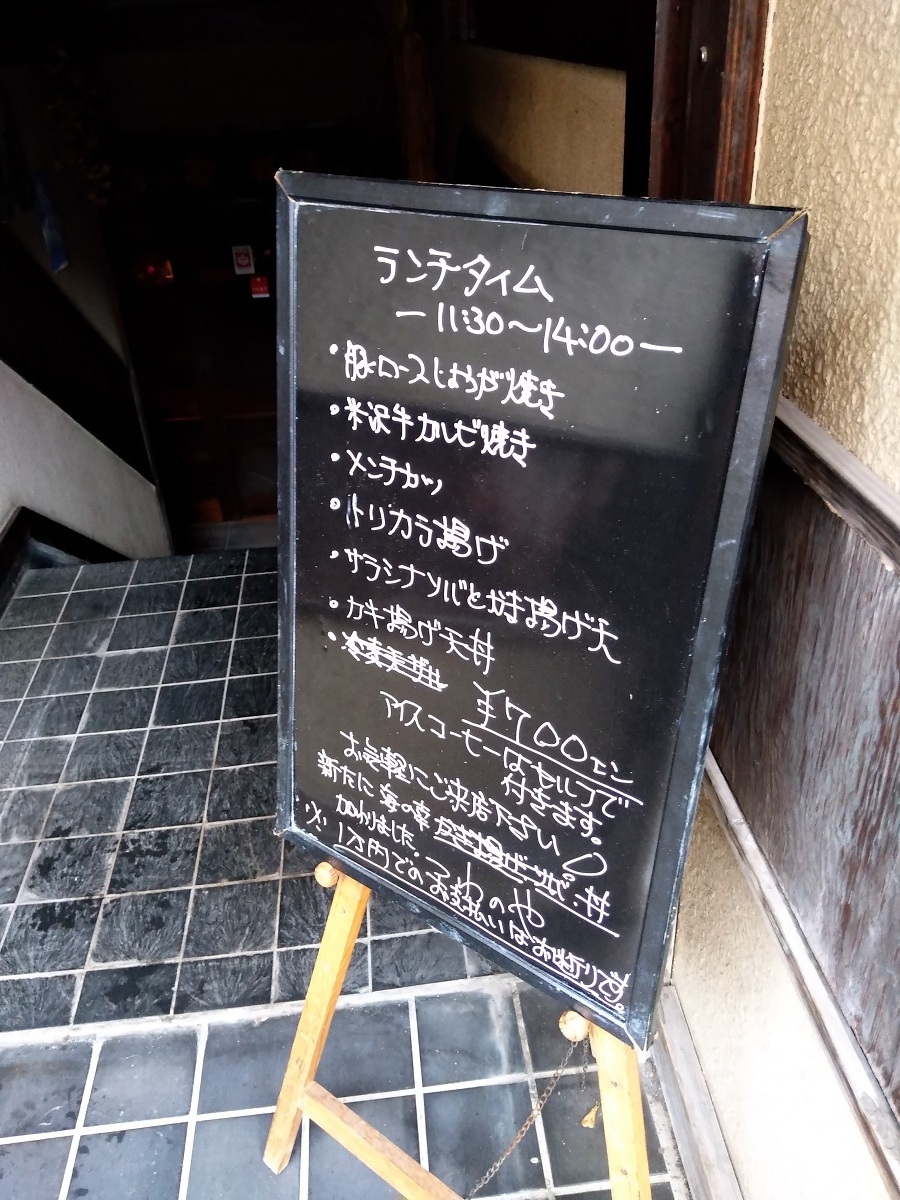 ランチタイム
ー11:30〜14:00ー
・豚ロースしょうが焼き
・米沢牛カルビ焼き
・メンチカツ
・トリカラ揚げ
・サラシナソバとかき揚げ天
・カキ揚げ天丼
¥700エン
アイスコーヒーはセルフで
付きます。
お気軽にご来店下さい
新たに海の幸かき揚げ 丼
加わりました。
その他
※1万円でのお支払いはお断りです。